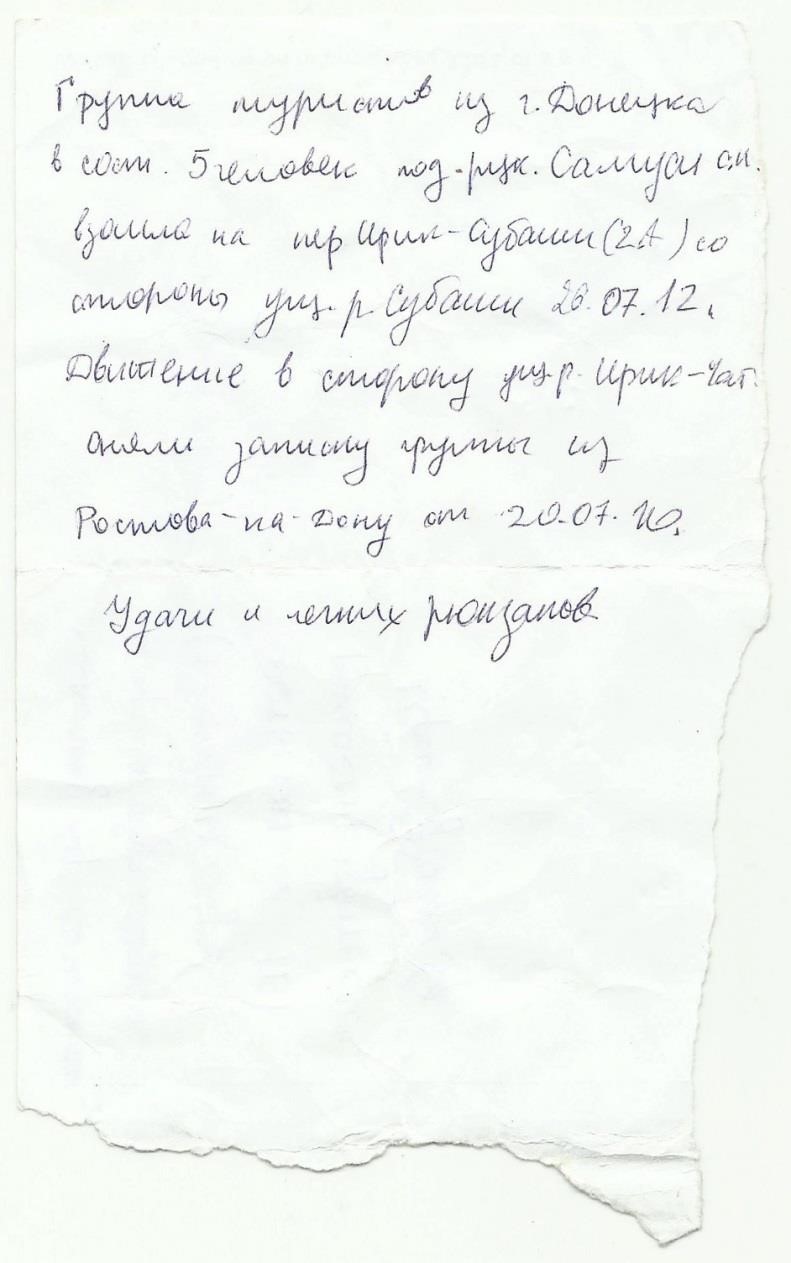 Группа туристов из г. Донецка
в сост. 5 человек под рук. Самуся
взошла на пер Ирик-Субаши (2А) со
стороны ущ. р. Субаши 07.12г.
Движение в сторону ущ р. Ирик-Чат.
сняли записку группы из
Ростова-на-Дону от 20.07.
Удачи и легких рюкзаков